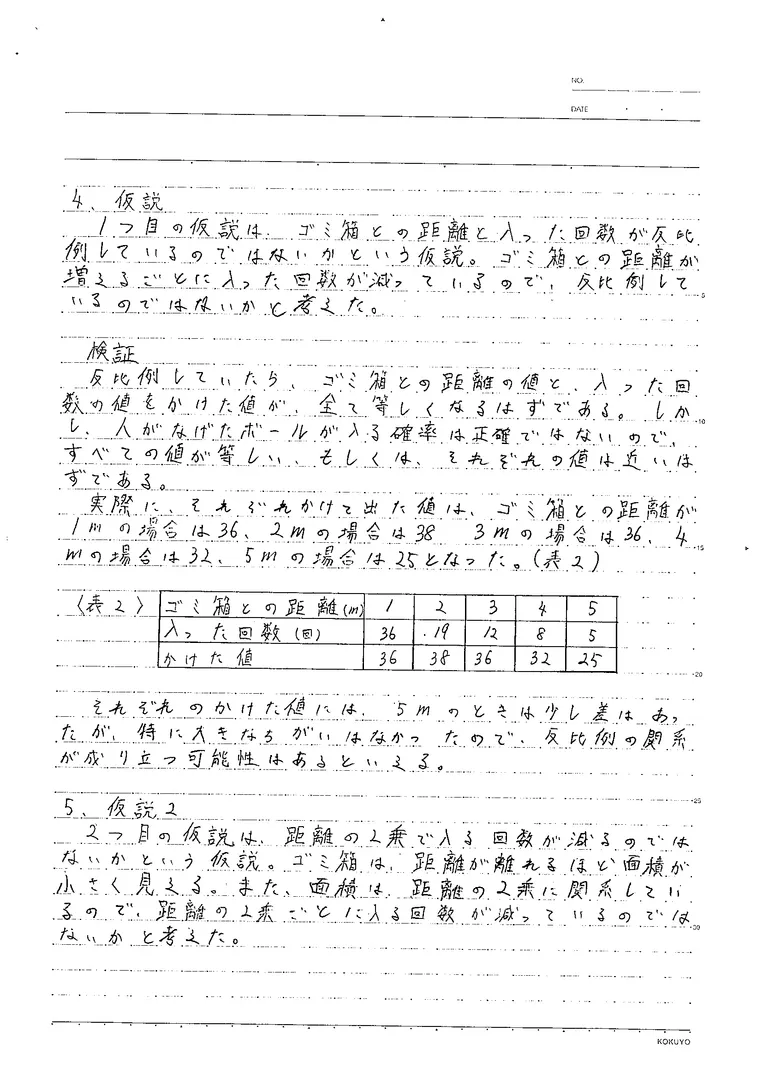 NO.
DATE
4、仮説
1つ目の仮説は、ゴミ箱との距離と入った回数が反比
例しているのではないかという仮説。ゴミ箱との距離が
増えるごとに入った回数が減っているので、反比例して
いるのではないかと考えた。
5
検証
反比例していたら、ゴミ箱との距離の値と、入った回
数の値をかけた値が、全て等しくなるはずである。しか
10
し、人がなげたボールが入る確率は正確ではないので、
すべての値が等しい、もしくは、それぞれの値は近いは
ずである。
実際に、それぞれかけて出た値は、ゴミ箱との距離が
1mの場合は36、2mの場合は38 3mの場合は36、4
15
mの場合は32、5mの場合は25となった。(表2)
〈表2〉 ゴミ箱との距離(m) 1 2 3 4 5
入った回数(回) 36 19 12 8 5
かけた値 36 38 36 32 25
20
それぞれのかけた値には、5mのときは少し差はあっ
たが、特に大きなちがいはなかったので、反比例の関係
が成り立つ可能性はあるといえる。
25
5、仮説2
2つ目の仮説は、距離の2乗で入る回数が減るのでは
ないかという仮説。ゴミ箱は、距離が離れるほど面積が
小さく見える。また、面積は、距離の2乗に関係してい
るので、距離の2乗ごとに入る回数が減っているのでは
30
ないかと考えた。
KOKUYO